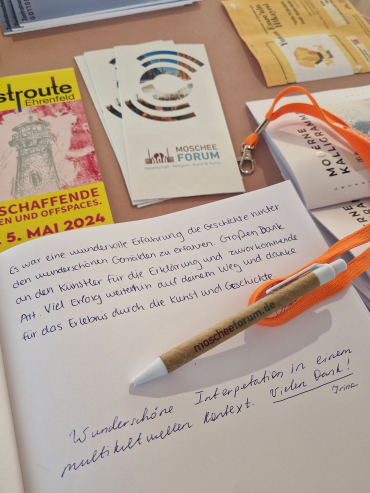 stroute
Ehrenfeld
SCHAFFENDE
EN UND OFFSPACES.
5. MAI 2024
MOSCHEE
FORUM
MODERNE
KALLIGRAMM
Es war eine wundervolle Erfahrung die Geschichte hinter
den wunderschönen Gemälden zu erfahren. Großen Dank
an den Künstler für die Erklärung und zuvorkommende
Art. Viel Erfolg weiterhin auf deinem Weg und danke
für das Erlebnis durch die Kunst und Geschichte
moscheeforum.de
Wunderschöne Interpetation in einem
multikulturellen Kontext. Vielen Dank!